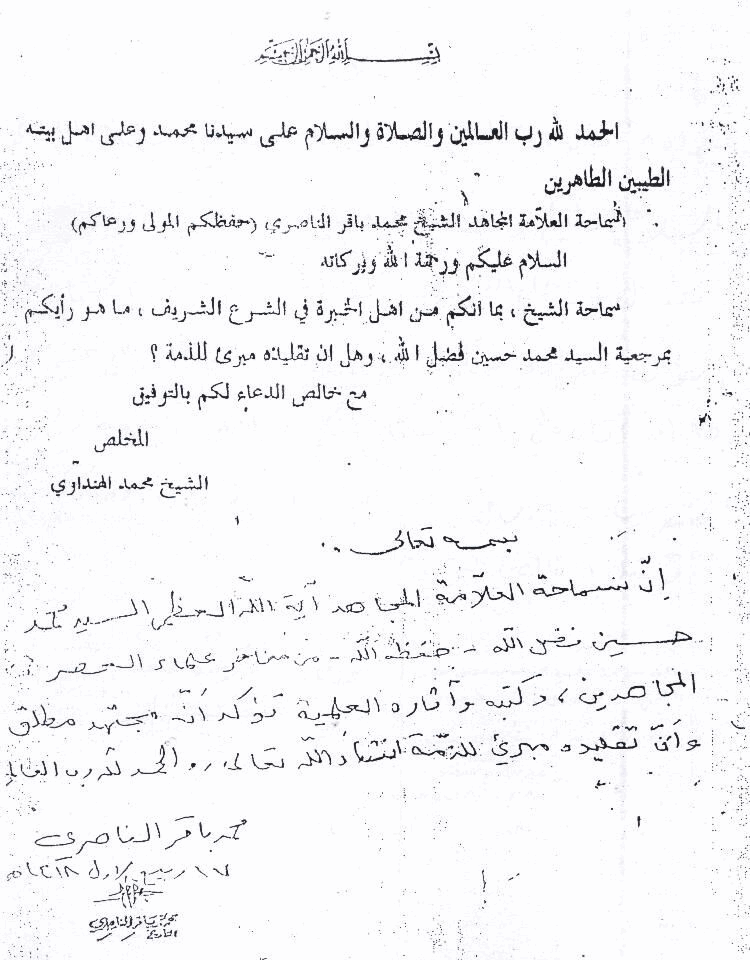 بسم الله الرحمن الرحيم
الحمد لله رب العالمين والصلاة والسلام على سيدنا محمد وعلى اهل بيته
الطيبين الطاهرين
سماحة العلاّمة المجاهد الشيخ محمد باقر الناصري (حفظكم المولى ورعاكم)
السلام عليكم ورحمة الله وبركاته
سماحة الشيخ ، بما انكم من اهل الخبرة في الشرع الشريف ، ما هو رأيكم
بمرجعية السيد محمد حسين فضل الله ، وهل ان تقليده مبرئ للذمة ؟
مع خالص الدعاء لكم بالتوفيق
المخلص
الشيخ محمد الهنداوي
بسمه تعالى ..
إنّ سماحة العلاّمة المجاهد آية الله العظمى السيد محمد
حسين فضل الله - حفظه الله - من مفاخر علماء العصر
المجاهدين ، وكتبه وآثاره العلمية تؤكد أنّه مجتهد مطلق
وأنّ تقليده مبرئ للذمّة انشاء الله تعالى . والحمد لله رب العالمين
محمد باقر الناصري
١٧ ربيع الاول ١٤١٨ هـ
محمد باقر الناصري